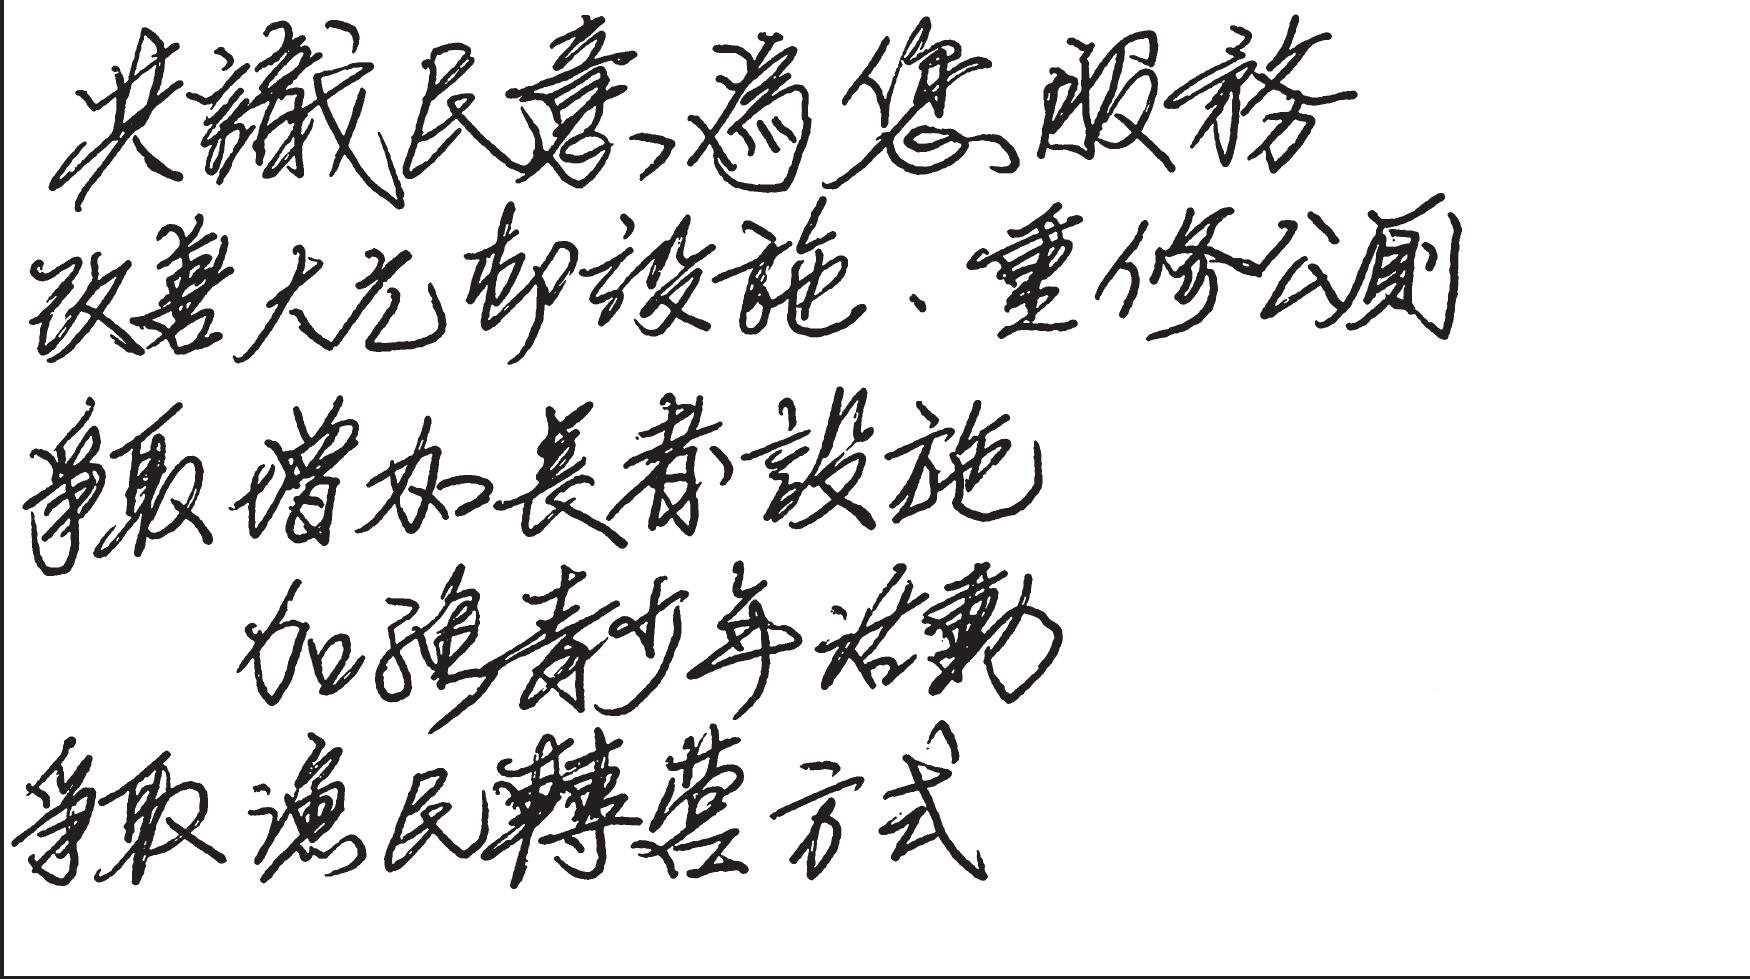 共識民意,為您服務
改善大元邨設施、重修公厠
爭取增加長者設施
加強青少年活動
爭取漁民轉營方式